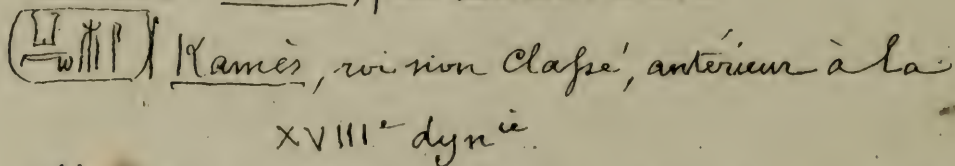 Kamès, roi non Classé, antérieur à la
XVIIIe dynie